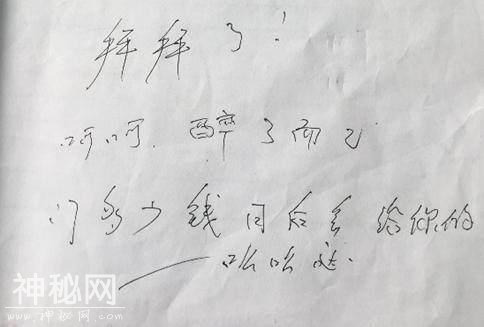 拜拜了!
呵呵,醉了而已
门多少钱日后会给你的
神秘网
www.神秘网.com